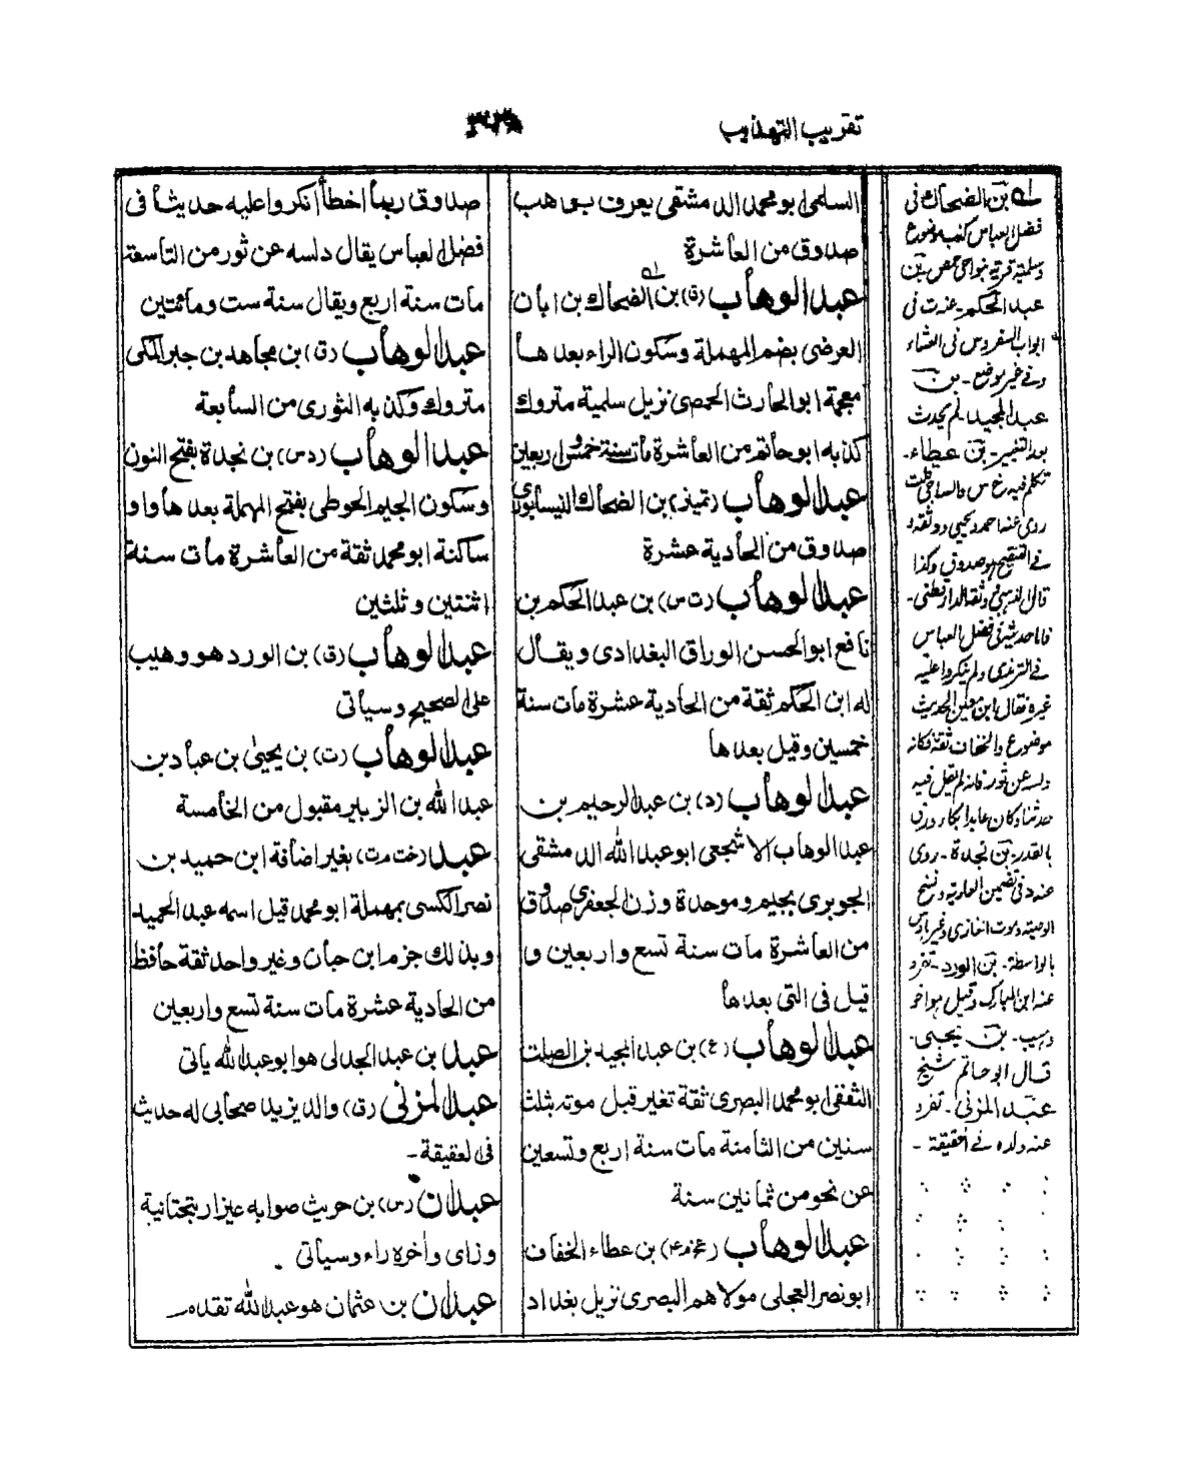 تقريب التهذيب
السلمي ابو محمد الدمشقي يعرف بوهب
صدوق من العاشرة
عبد الوهاب (ق) بن الضحاك بن ابان
العرضي بضم المهملة وسكون الراء بعدها
معجمة ابو الحارث الحمصي نزيل سلمية متروك
كذبه ابو حاتم من العاشرة مات سنة خمس واربعين
عبد الوهاب (تميز) بن الضحاك النيسابوري
صدوق من الحادية عشرة
عبد الوهاب (ت س) بن عبد الحكم بن
نافع ابو الحسن الوراق البغدادي ويقال
له ابن الحكم ثقة من الحادية عشرة مات سنة
خمسين وقيل بعدها
عبد الوهاب (د) بن عبد الرحيم بن
عبد الوهاب الاشجعي ابو عبد الله الدمشقي
الجوبري بجيم وموحدة وزن الجعفري صدوق
من العاشرة مات سنة تسع واربعين و
قيل في التي بعدها
عبد الوهاب (ع) بن عبد المجيد بن الصلت
الثقفي ابو محمد البصري ثقة تغير قبل موته بثلث
سنين من الثامنة مات سنة اربع وتسعين
عن نحو من ثمانين سنة
عبد الوهاب (عخ م ٤) بن عطاء الخفاف
ابو نصر العجلي مولاهم البصري نزيل بغداد
صدوق ربما اخطأ انكروا عليه حديثا في
فضل العباس يقال دلسه عن ثور من التاسعة
مات سنة اربع ويقال سنة ست ومائتين
عبد الوهاب (ق) بن مجاهد بن جبر المكي
متروك وكذبه الثوري من السابعة
عبد الوهاب (د س) بن نجدة بفتح النون
وسكون الجيم الحوطي بفتح المهملة بعدها واو
ساكنة ابو محمد ثقة من العاشرة مات سنة
اثنتين وثلثين
عبد الوهاب (ق) بن الورد هو وهيب
على الصحيح وسياتي
عبد الوهاب (ت) بن يحيى بن عباد بن
عبد الله بن الزبير مقبول من الخامسة
عبد (خت م ت) بغير اضافة ابن حميد بن
نصر الكسي بمهملة ابو محمد قيل اسمه عبد الحميد
وبذلك جزم ابن حبان وغير واحد ثقة حافظ
من الحادية عشرة مات سنة تسع واربعين
عبد بن عبد الجدلي هو ابو عبد الله ياتي
عبد المزني (ق) والد يزيد صحابي له حديث
في العقيقة -
عبدان (س) بن حريث صوابه عيزار بتحتانية
وزاي وآخره راء وسياتي .
عبدان بن عثمان هو عبد الله تقدم
له بن الضحاك في
فضل العباس كذب موضوع
وسلمية قرية بنواحي حمص بن
عبد الحكم - عنه ت في
ابواب السفر وس في العشاء
وفي غير موضع - بن
عبد المجيد لم يحدث
بعد التغير - بن عطاء -
روى عنه احمد ويحيى ووثقه
في التنقيح هو صدوق وكذا
قال الذهبي وثقه الدارقطني -
فاما حديثه في فضل العباس
في الترمذي ولم ينكروا عليه
غيره فقال ابن معين الحديث
موضوع والخفاف ثقة فكانه
دلسه عن ثور فانه لم يقل فيه
حدثنا وكان عابدا بكاء ورمي
بالقدر - بن نجدة - روى
بالواسطة - بن الورد - تفرد
عنه ابن المبارك وقيل هو اخو
وهيب - بن يحيى -
قال ابو حاتم شيخ
عبد المزني - تفرد
عنه ولده في العقيقة -